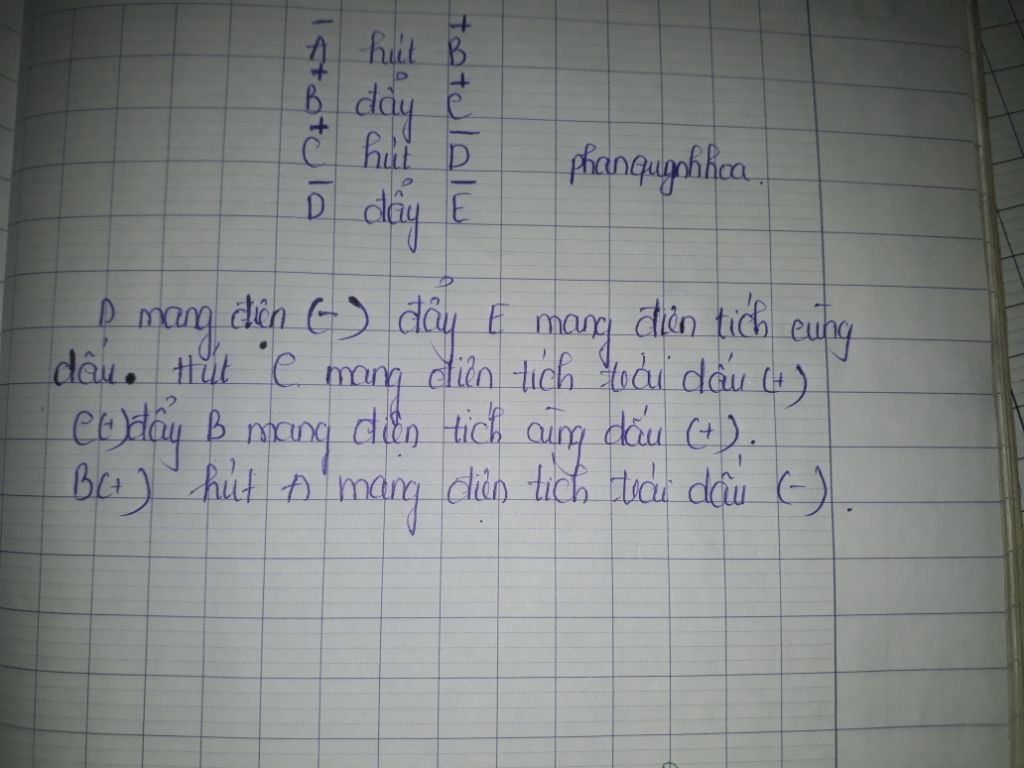 − +
A hút B
+ +
B đẩy C
+ −
C hút D phanquynhhoa.
− −
D đẩy E
D mang điện (−) đẩy E mang điện tích cùng
dấu. Hút C mang điện tích trái dấu (+)
C(+) đẩy B mang điện tích cùng dấu (+).
B(+) hút A mang điện tích trái dấu (−).